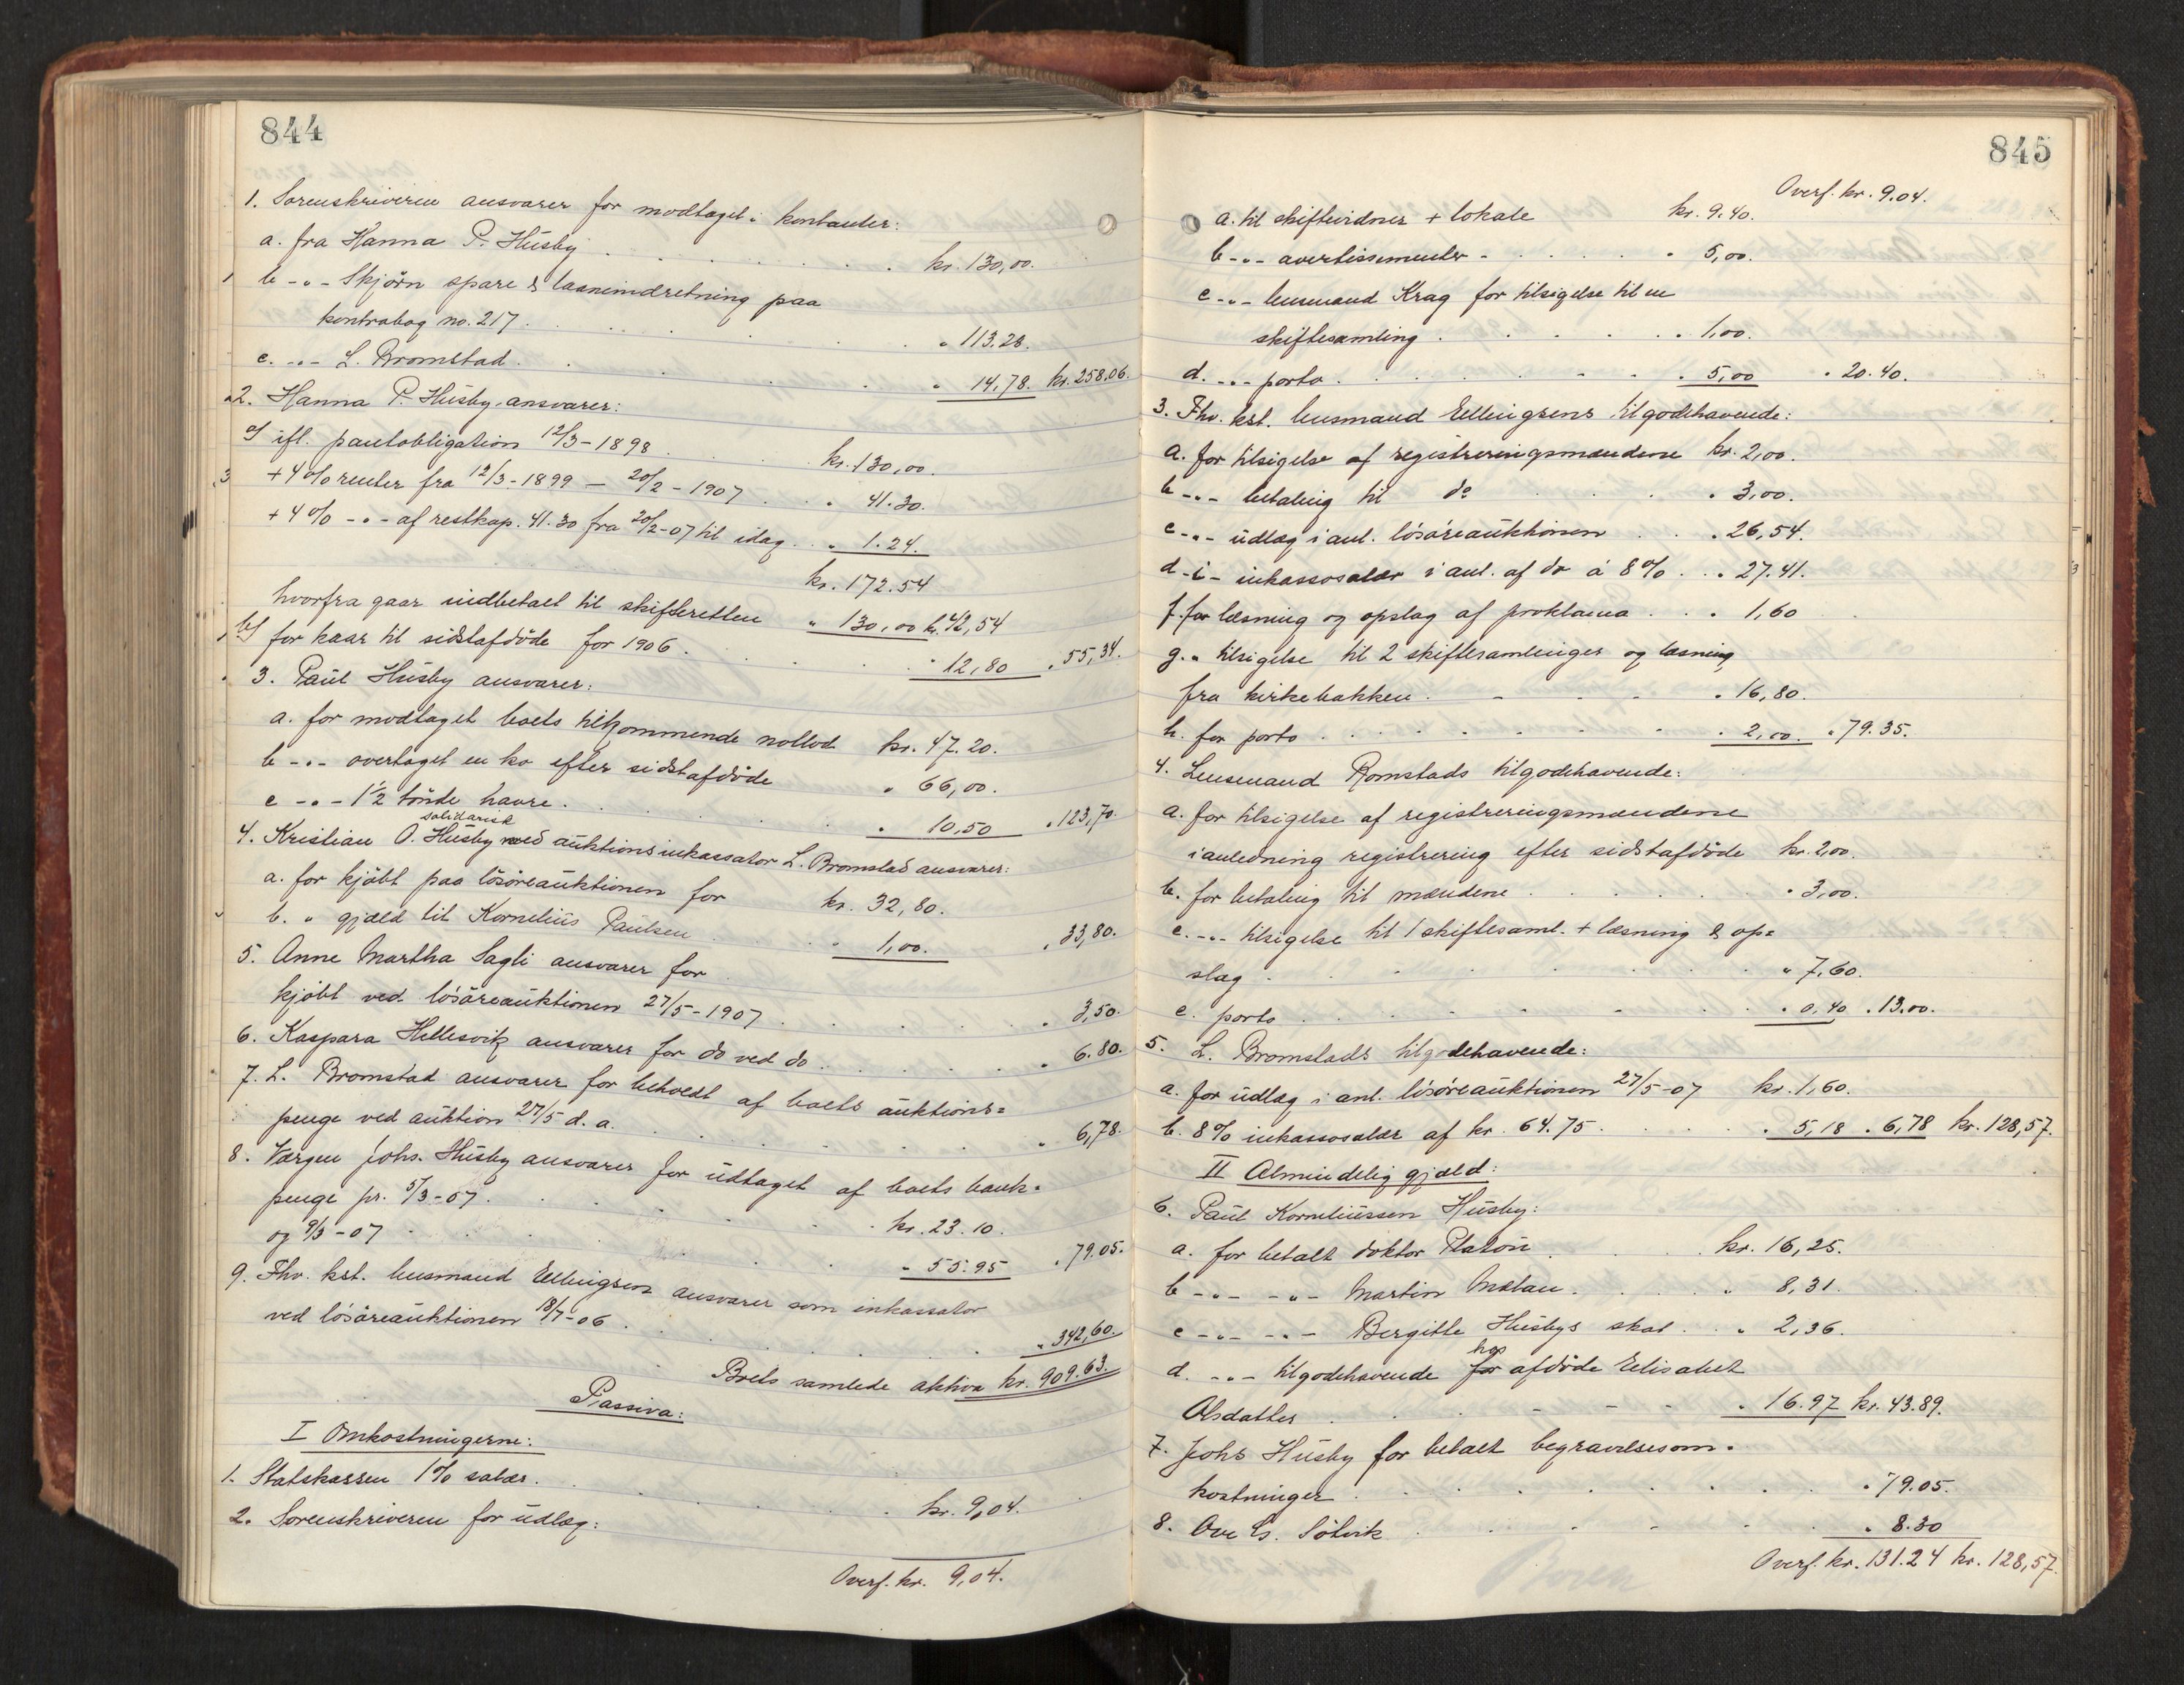 844
1. Sorenskriveren ansvarer for modtaget i kontanter:
a. fra Hanna P. Husby . . . . . kr. 130,00.
b - „ - Skjörn spare & laaneindretning paa
kontrabog no. 217 . . . . . „ 113.28.
c. - „ - L. Bromstad . . . . . „ 14,78. kr. 258.06.
2. Hanna P. Husby ansvarer:
a/ ifl. pantobligation 12/3-1898 . . . kr. 130,00.
+ 4% renter fra 12/3-1899 - 20/2-1907 . . „ 41.30.
+ 4% - „ - af restkap. 41.30 fra 20/2-07 til idag . . „ 1.24.
kr. 172.54
hvorfra gaar indbetalt til skifteretten „ 130,00 kr. 42,54
b/ for kaar til sidstafdöde for 1906 . . . „ 12,80 „ 55,34.
3. Paul Husby ansvarer:
a. for modtaget boets tilkommende notlod kr. 47.20.
b - „ - overtaget en ko efter sidstafdöde „ 66,00.
c - „ - 1 1/2 tönde havre . . . . „ 10,50 „ 123,70.
solidarisk
4. Kristian O. Husby med auktionsinkassator L. Bromstad ansvarer:
a. for kjöbt paa lösöreauktionen for kr. 32,80.
b. „ gjæld til Kornelius Paulsen . . . „ 1,00. „ 33,80.
5. Anne Martha Sagli ansvarer for
kjöbt ved lösöreauktionen 27/5-1907 . . . . . „ 3,50.
6. Kaspara Hellesvik ansvarer for do ved do . . . . . „ 6.80.
7. L. Bromstad ansvarer for behold af boets auktions=
penge ved auktion 27/5 d. a. . . . . „ 6,78.
8. Værgen Johs. Husby ansvarer for udtaget af boets bank=
penge pr. 5/3-07 . . . . . kr. 23.10.
og 9/3-07 . . . . . „ 55.95 „ 79.05.
9. Fhv. kst. lensmand Ellingsen ansvarer som inkassator
ved lösöreauktionen 18/7-06 . . . . . „ 342,60.
Boets samlede aktiva kr. 909.63.
Passiva:
I Omkostningerne:
1. Statskassen 1% salær . . . . . kr. 9,04.
2. Sorenskriveren for udlæg:
Overf. kr. 9,04.
845
Overf. kr. 9.04.
a. til skiftevidner + lokale kr. 9.40.
b - „ - avertissementer - . . . . „ 5,00.
c - „ - lensmand Krag for tilsigelse til en
skiftesamling . . . . . „ 1,00.
d. - „ - porto . . . . . „ 5,00 „ 20.40.
3. Fhv. kst. lensmand Ellingsens tilgodehavende:
a. for tilsigelse af registreringsmændene kr. 2,00.
b - „ - betaling til do . . . „ 3,00.
c - „ - udlæg i anl. lösöreauktionen . . „ 26,54.
d - i - inkassosalær i anl. af do á 8% . . „ 27.41.
f. for læsning og opslag af proklama . . „ 1,60
g. „ tilsigelse til 2 skiftesamlinger og læsning
fra kirkebakken . . . . „ 16,80.
h. for porto . . . . . „ 2,00. „ 79.35.
4. Lensmand Romstads tilgodehavende:
a. for tilsigelse af registreringsmændene
i anledning registrering efter sidstafdöde kr. 2,00.
b. for betaling til mændene . . . . „ 3,00.
c. - „ - tilsigelse til 1 skiftesaml. + læsning & op=
slag . . . . . „ 7,60.
e. porto . . . . . „ 0,40 „ 13.00.
5. L. Bromstads tilgodehavende:
a. for udlæg i anl. lösöreauktionen 27/5-07 kr. 1,60.
b. 8% inkassosalær af kr. 64.75 . . . . „ 5,18 „ 6,78 kr. 128,57.
II Almindelig gjæld:
6. Paul Korneliussen Husby:
a. for betalt doktor Platou . . . kr. 16,25.
b - „ - - „ - Martin Mælan . . . . „ 8,31.
c - „ - - „ - Bergitte Husbys skat . . „ 2,36.
hos
d. - „ - tilgodehavende for afdöde Elisabet
Olsdatter . . . . . „ 16.97 kr. 43.89.
7. Johs Husby for betalt begravelsesom=
kostninger . . . . . „ 79.05.
8. Ove Es. Sölvik . . . . . „ 8.30
Overf. kr. 131.24 kr. 128,57.